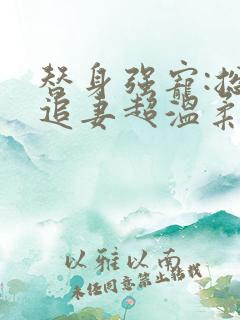 替身强宠:总
追妻超温柔
以雅以南
未经同意禁止转载